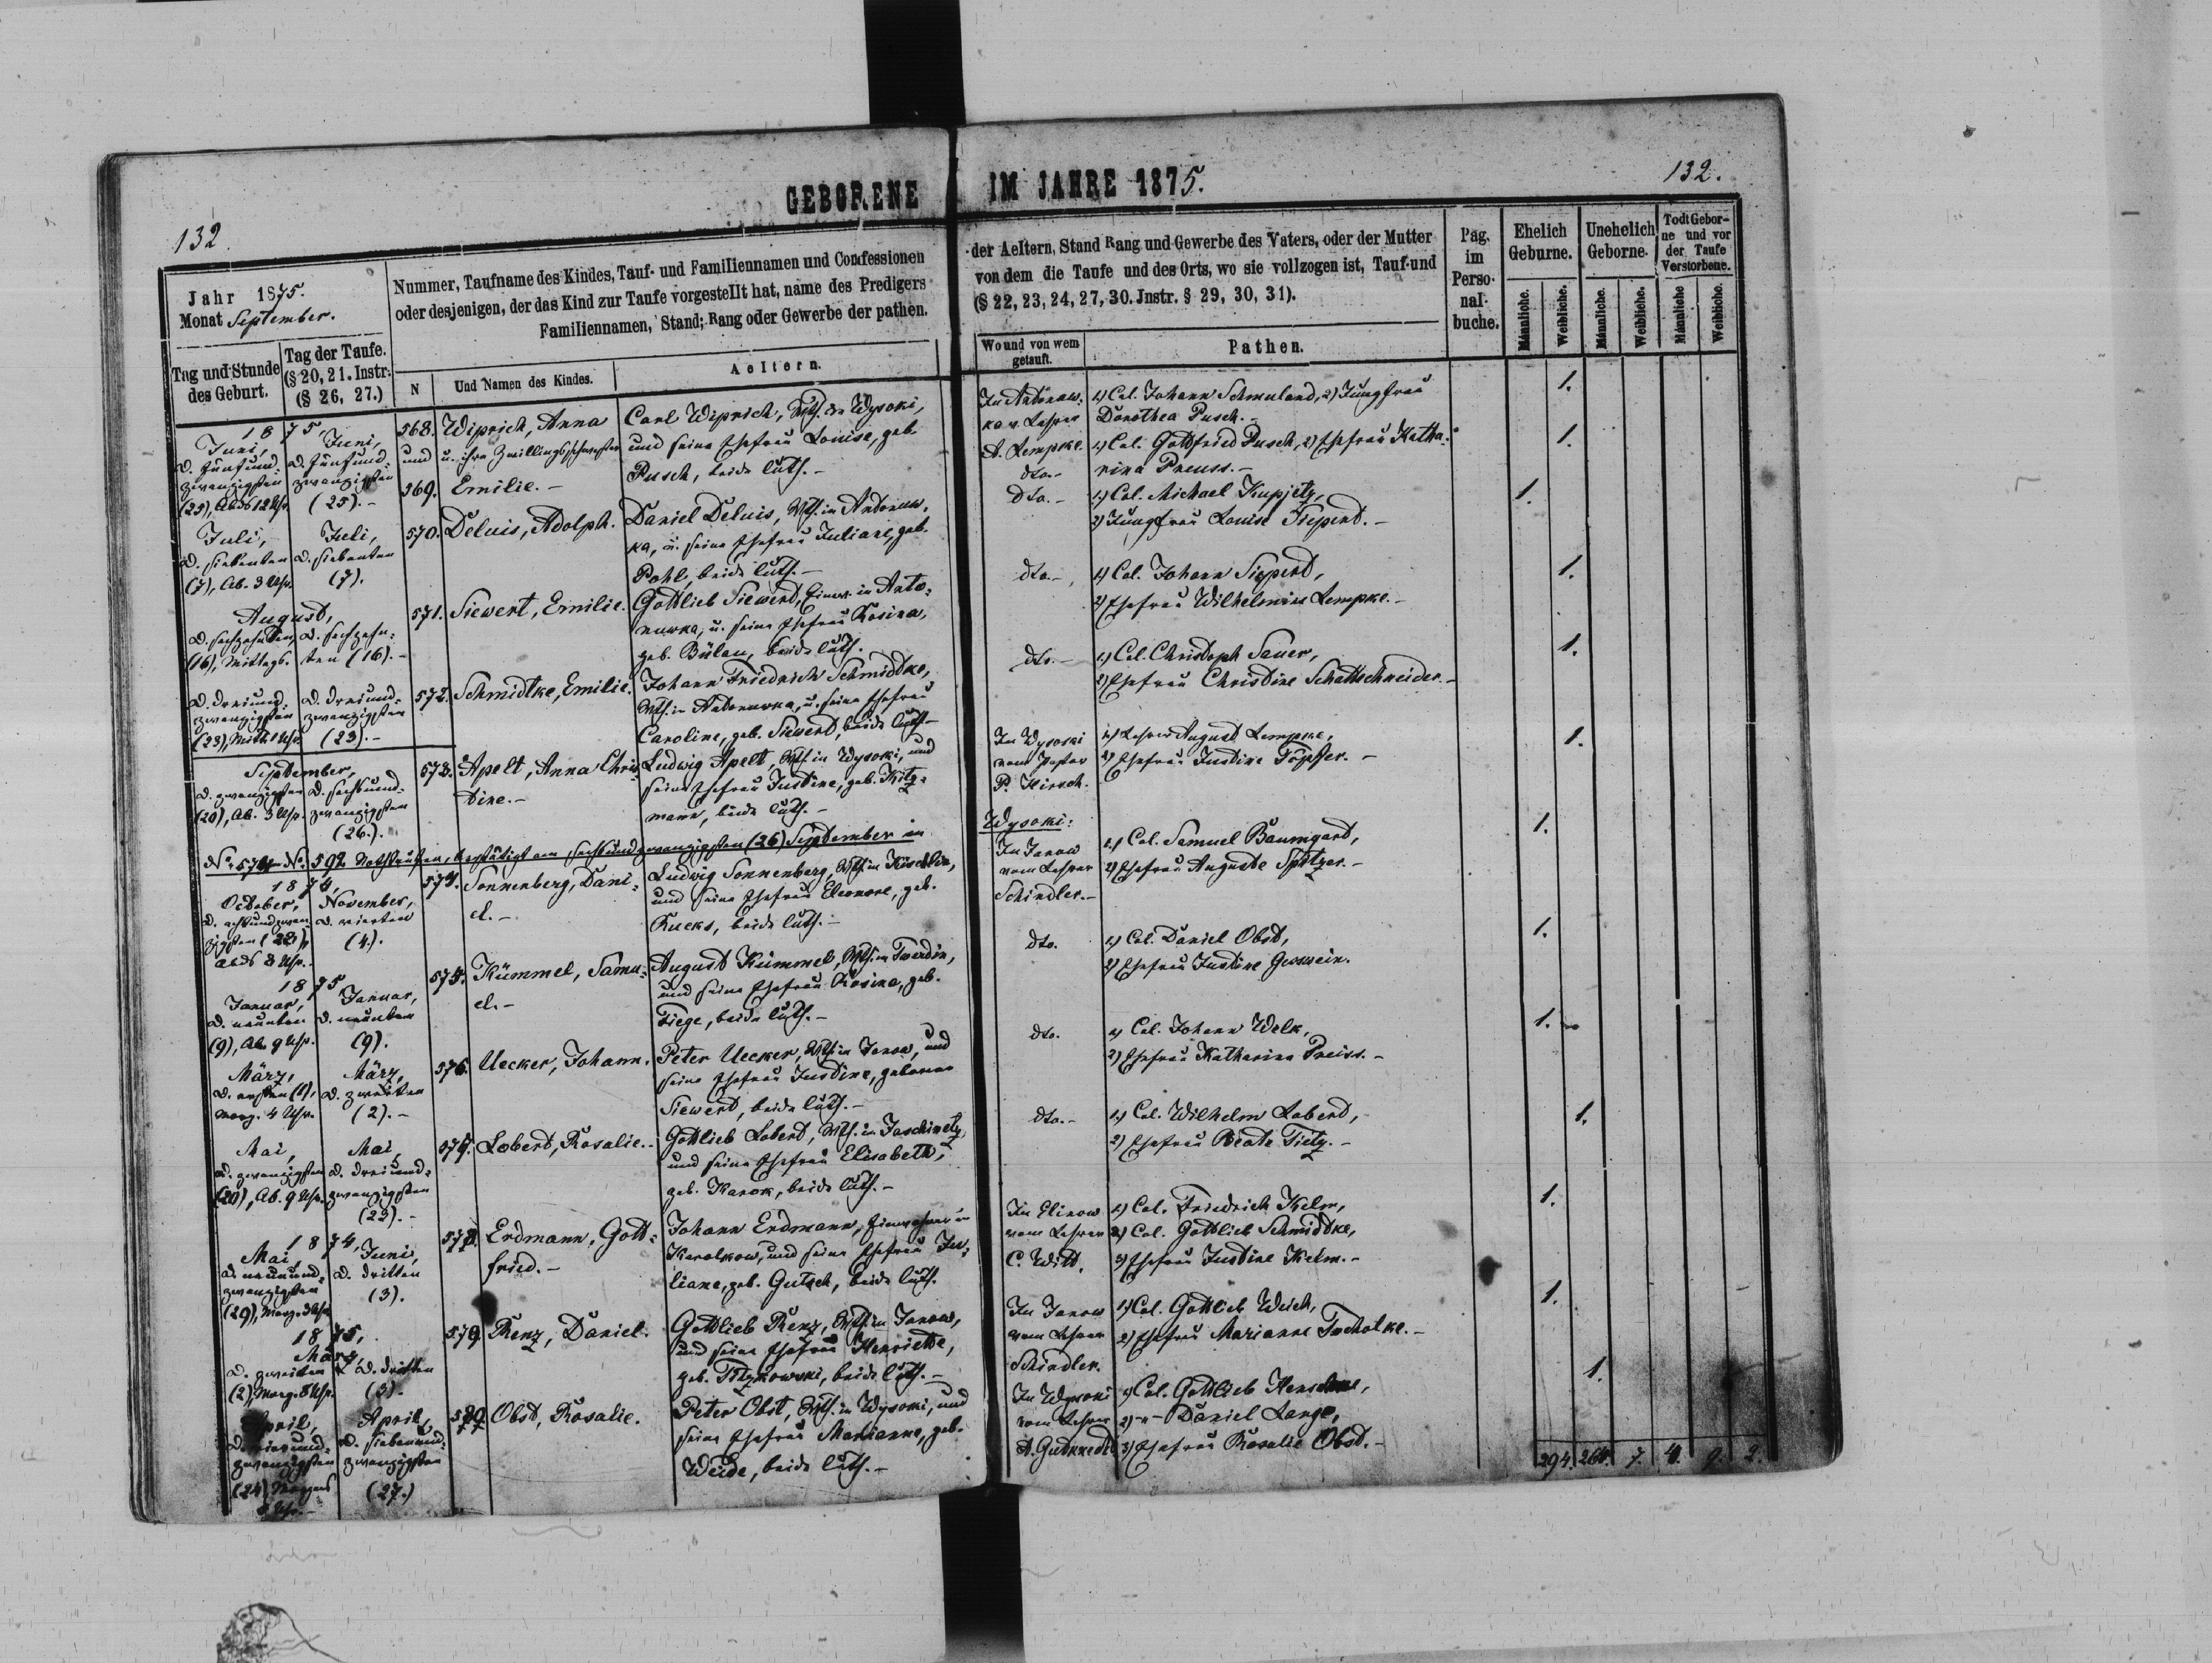 GEBORENE IM JAHRE 1875.
132.
132.
Jahr 1875.
Monat September.
Tag und Stunde des Geburt.
Tag der Taufe.
(§ 20, 21. Instr:
(§ 26, 27.)
Nummer, Taufname des Kindes, Tauf- und Familiennamen und Confessionen
oder desjenigen, der das Kind zur Taufe vorgestellt hat, name des Predigers
Familiennamen, Stand; Rang oder Gewerbe der pathen.
N
Und Namen des Kindes.
Aeltern.
1875,
Juni,
d. fünfund-
zwanzigsten
(25), Abds 12 Uhr
Juni,
d. fünfund-
zwanzigsten
(25).-
568.
und
569.
Wiprich, Anna
u. ihre Zwillingsschwester
Emilie.-
Carl Wiprich, Wth. in Wysoki,
und seine Ehefrau Louise, geb.
Pusch, beide luth.-
Juli,
d. siebenten
(7), Ab. 3 Uhr.
Juli,
d. siebenten
(7).
570.
Deluis, Adolph.
Daniel Deluis, Wth. in Antonuw,
ka, u. seine Ehefrau Juliane, geb.
Pohl, beide luth.-
August,
d. sechzehnten
(16), Mittags.
d. sechzehn-
ten (16).-
571.
Siewert, Emilie.
Gottlieb Siewerd, Einw. in Anto-
nuwka, u. seine Ehefrau Rosina,
geb. Bülau, beide luth.
d. dreiund-
zwanzigsten
d. dreiund-
zwanzigsten
(23).-
572.
Schmidtke, Emilie.
Johann Friedrich Schmidtke,
Wth. in Antonuwka, u. seine Ehefrau
Caroline, geb. Siewerd, beide luth-
September,
d. zwanzigsten
(20), Ab. 3 Uhr.
d. sechsund-
zwanzigsten
(26.).
573.
Apelt, Anna Chris-
tine.-
Ludwig Apelt, Wth. in Wysoki, und
seine Ehefrau Justine, geb. Kitz-
mann, beide luth.-
No. 574-No. 592 Nothtaufen, bestätigt am sechsundzwanzigsten (26) September in
1874,
October,
d. achtundzwan-
zigsten (28),
Abds 8 Uhr.
November,
d. vierten
(4).
574.
Sonnenberg, Dani-
el.-
Ludwig Sonnenberg, Wth. in
und seine Ehefrau Eleonore, geb.
Kucks, beide luth.-
1875
Januar,
d. neunten
(9), Ab. 9 Uhr.
Januar,
d. neunten
(9).
575.
Kümmel, Samu-
el.-
August Kümmel, Wth. in Twerdin,
und seine Ehefrau Rosina, geb.
Fiege, beide luth.-
März,
d. ersten (1),
Morg. 4 Uhr.
März,
d. zweiten
(2).-
576.
Uecker, Johann.
Peter Uecker, Wth. in Janow, und
seine Ehefrau Justine, geborne
Siewerd, beide luth.-
Mai,
d. zwanzigsten
(20), Ab. 9 Uhr.
Mai,
d. dreiund-
zwanzigsten
(23).-
577.
Lobert, Rosalie.-
Gottlieb Lobert, Wth. in Jaschinetz
und seine Ehefrau Elisabeth,
geb. Karok, beide luth.-
1874,
Mai,
d. neunund-
zwanzigsten
(29), Morg. 3 Uhr
Juni,
d. dritten
(3).
578.
Erdmann, Gott-
fried.-
Johann Erdmann, Einwohner in
Karolkow, und seine Ehefrau Ju-
liane, geb. Gutsch, beide luth.
1875,
März,
d. zweiten
(2), Morg. 8 Uhr.
d. dritten
(3).
579.
Renz, Daniel.
Gottlieb Renz, Wth. in Janow,
und seine Ehefrau Henriette,
geb. Titzkowski, beide luth.-
April,
d. vierund-
zwanzigsten
(24), Morgens
April,
d. siebenund-
zwanzigsten
(27.)
580.
Obst, Rosalie.
Peter Obst, Wth. in Wysoki, und
seine Ehefrau Marianne, geb.
Weide, beide luth.-
der Aeltern, Stand Rang und Gewerbe des Vaters, oder der Mutter
von dem die Taufe und des Orts, wo sie vollzogen ist, Tauf-und
(§ 22, 23, 24, 27, 30. Jnstr. § 29, 30, 31).
Wo und von wem
getauft.
Pathen.
Pag.
im
Perso-
nal-
buche.
Ehelich
Geburne.
Unehelich
Geborne.
Todt Gebor-
ne und vor
der Taufe
Verstorbene.
Männliche.
Weibliche.
Männliche.
Weibliche.
Männliche
Weibliche.
In Antonuw-
ka v. Lehrer
A. Lempke.
dto.-
1) Col. Johann Schmuland, 2) Jungfrau
Dorothea Pusch.-
1) Col. Gottfried Pusch, 2) Ehefrau Katha-
rina Preuss.-
1.
1.
dto.-
1) Col. Michael Kupjetz,
2) Jungfrau Louise Siepert.-
1.
dto.-
1) Col. Johann Siepert,
2) Ehefrau Wilhelmine Lempke.-
1.
dto.-
1) Col. Christoph Sauer,
2) Ehefrau Christine Schattschneider.-
1.
In Wysoki
vom Pastor
P. Hirsch.
1) Lehrer August Lempke,
2) Ehefrau Justine Töpfer.-
1.
Wysoki:
In Janow
vom Lehrer
Schindler.-
1) Col. Samuel Baumgard,
2) Ehefrau Auguste Spitzer.-
1.
dto.
1) Col. Daniel Obst,
2) Ehefrau Justine
1.
dto.
1) Col. Johann Welk,
2) Ehefrau Katharina Preiss.-
1.
dto.-
1) Col. Wilhelm Lobert,
2) Ehefrau Beate Tietz.-
1.
In Elinow
vom Lehrer
C. Witt.
1) Col. Friedrich Kelm,
2) Col. Gottlieb Schmidtke,
3) Ehefrau Justine Kelm.-
1.
In Janow
vom Lehrer
Schindler.
1) Col. Gottlieb Weich,
2) Ehefrau Marianne Tscholke.-
1.
In Wysoki
vom Lehrer
A. Gutknecht
1) Col. Gottlieb Henschke,
2) -"- Daniel Lange,
3) Ehefrau Rosalie Obst.-
1.
294. 264. 7. 4. 9. 2.